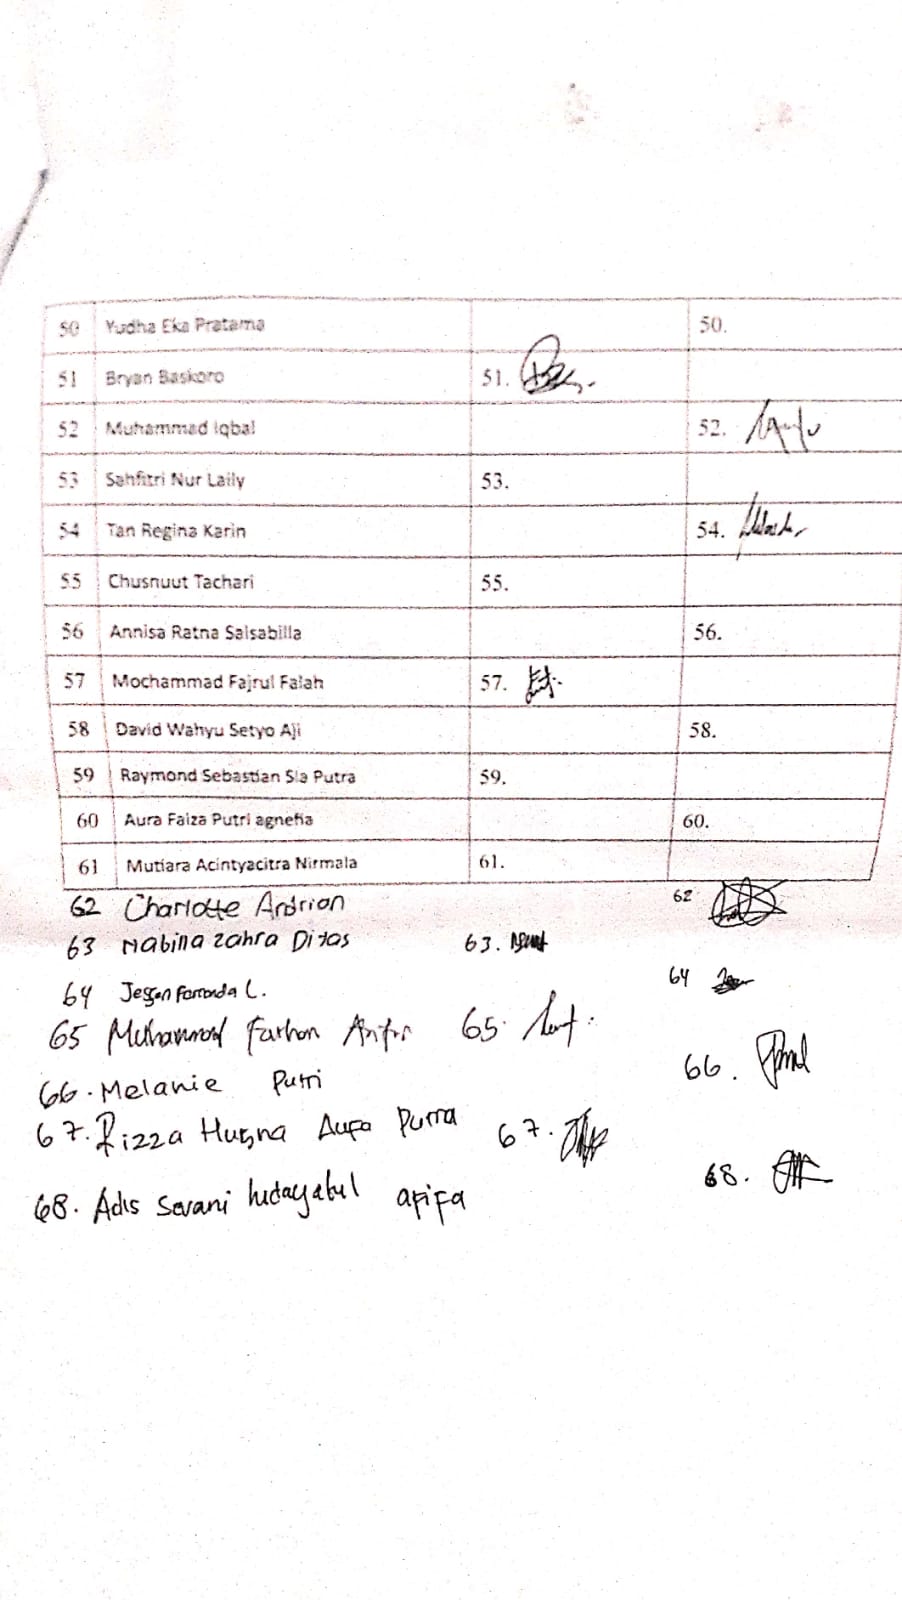 50 Yudha Eka Pratama 50.
51 Bryan Baskoro 51.
52 Muhammad Iqbal 52.
53 Sahfitri Nur Laily 53.
54 Tan Regina Karin 54.
55 Chusnuut Tachari 55.
56 Annisa Ratna Salsabilla 56.
57 Mochammad Fajrul Falah 57.
58 David Wahyu Setyo Aji 58.
59 Raymond Sebastian Sia Putra 59.
60 Aura Faiza Putri agnefia 60.
61 Mutiara Acintyacitra Nirmala 61.
62 Charlotte Andrian 62
63 Nabila Zahra Ditas 63.
64 L. 64
65 Muhammad Farhan 65.
66. Melanie Putri 66.
67. Rizza Husna Aufa Putra 67.
68. Adis Sevani hidayatul afifa 68.